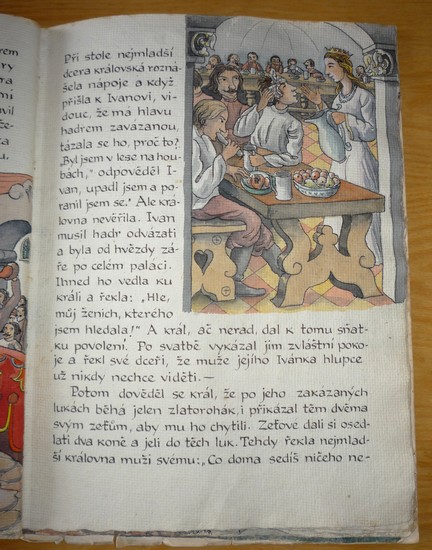 rem
ry
ra
mi
vil
že-
ta
u.
Při stole nejmladší
dcera královská rozná-
šela nápoje a když
přišla k Ivanovi, vi-
douc, že má hlavu
hadrem zavázanou,
tázala se ho, proč to?
„Byl jsem v lese na hou-
bách,” odpověděl I-
van, upadl jsem a po-
ranil jsem se.” Ale krá-
lovna nevěřila. Ivan
musil hadr odvázati
a byla od hvězdy zá-
ře po celém paláci.
Ihned ho vedla ku
králi a řekla: „Hle,
můj ženich, kterého
jsem hledala!” A král, ač nerad, dal k tomu sňat-
ku povolení. Po svatbě vykázal jim zvláštní poko-
je a řekl své dceři, že muže jejího Ivánka hlupce
už nikdy nechce viděti. —
Potom dověděl se král, že po jeho zakázaných
lukách běhá jelen zlatorohák, i přikázal těm dvěma
svým zeťům, aby mu ho chytili. Zeťové dali si osed-
lati dva koně a jeli do těch luk. Tehdy řekla nejmlad-
ší královna muži svému: „Co doma sedíš ničeho ne-